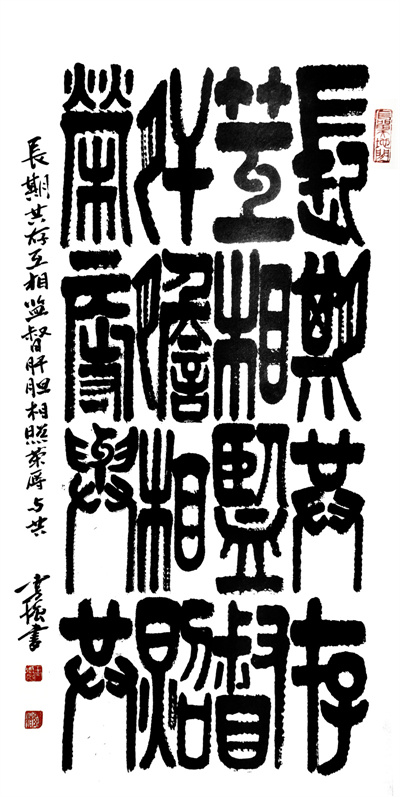 長期共存
互相監督
肝膽相照
榮辱與共
長期共存互相监督肝胆相照荣辱与共
書